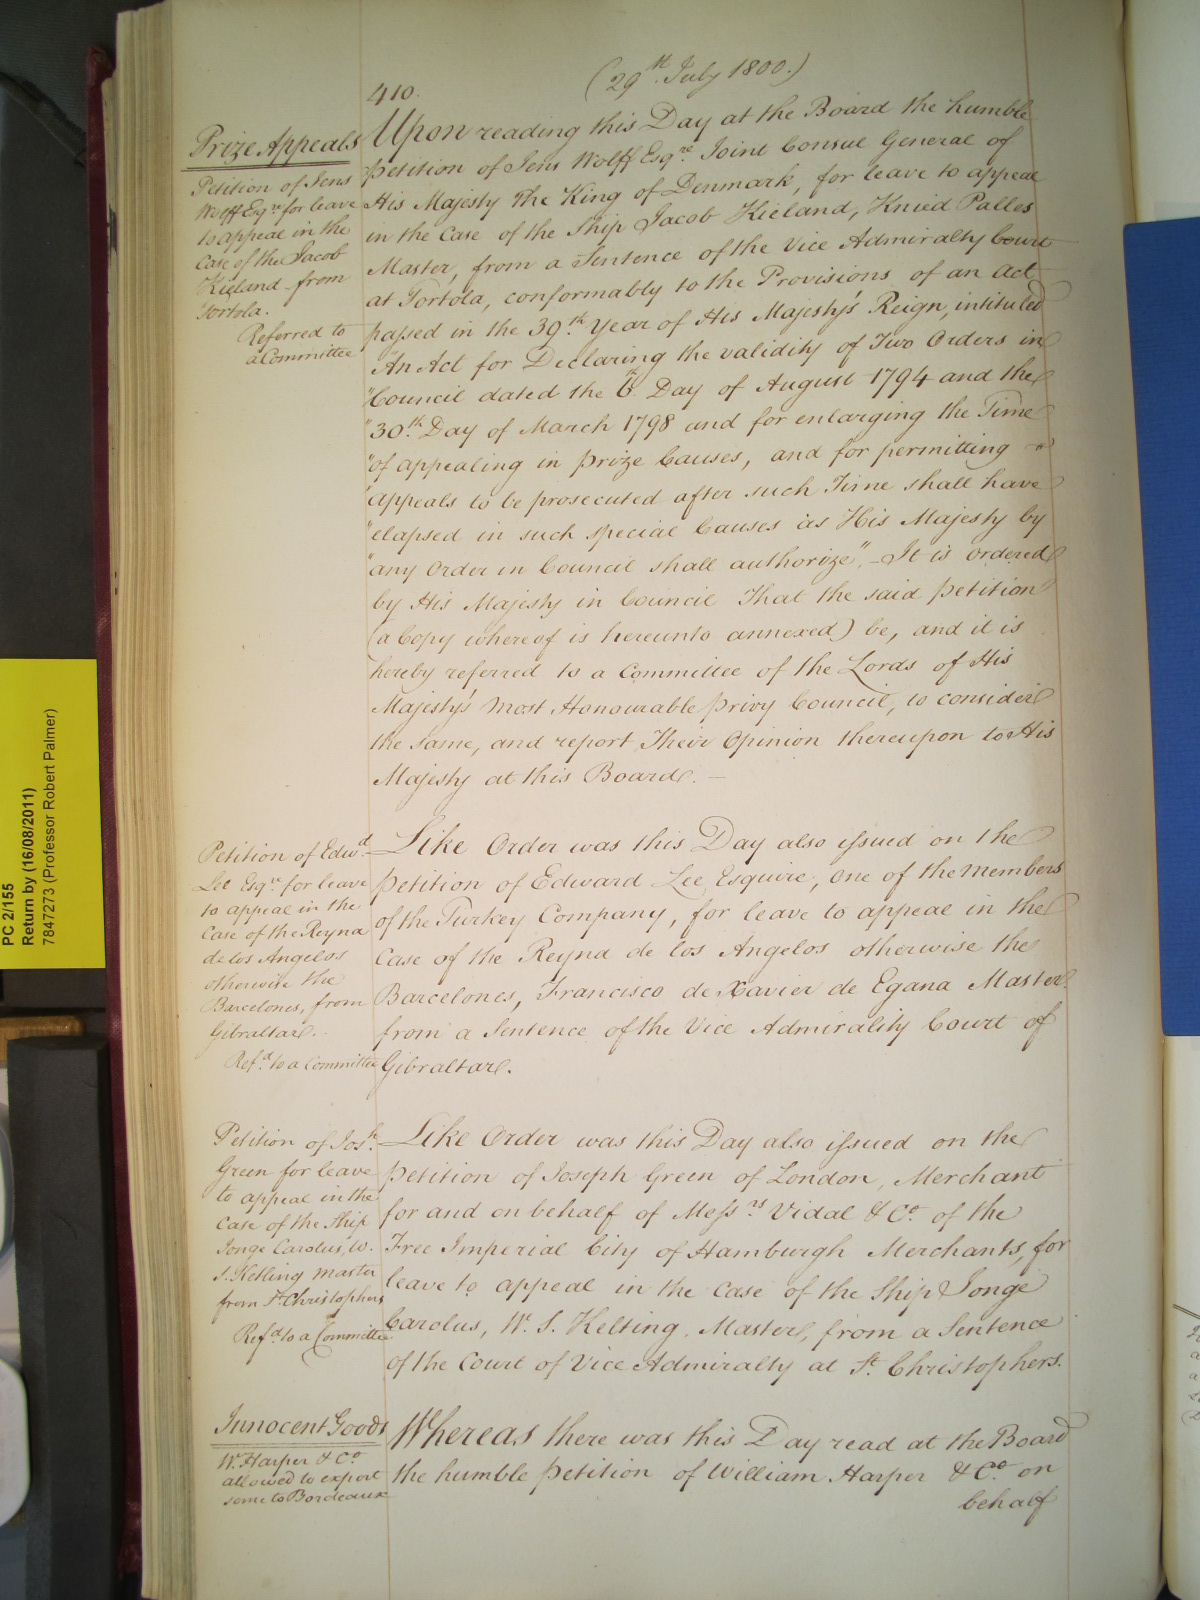 (29th July 1800.)
410.
Prize Appeals
Petition of Jens
Wolff Esqre for leave
to appeal in the
Case of the Jacob
Kieland from
Tortola.
Referred to
a Committee
Upon reading this Day at the Board the humble
Petition of Jens Wolff Esqre Joint Consul General of
His Majesty The King of Denmark, for leave to appeal
in the Case of the Ship Jacob Kieland, Knied Palles
Master, from a Sentence of the Vice Admiralty Court
at Tortola, conformably to the Provisions of an Act
passed in the 39th Year of His Majesty's Reign, intituled
"An Act for Declaring the validity of Two Orders in
"Council dated the 6th Day of August 1794 and the
"30th Day of March 1798 and for enlarging the Time
"of appealing in Prize Causes, and for permitting
"appeals to be prosecuted after such Time shall have
"elapsed in such special Causes as His Majesty by
"any Order in Council shall authorize", - It is ordered
by His Majesty in Council That the said Petition
(a Copy whereof is hereunto annexed) be, and it is
hereby referred to a Committee of the Lords of His
Majesty's most Honourable Privy Council, to consider
the same, and report Their Opinion thereupon to His
Majesty at this Board. -
Petition of Edwd
Lee Esqre for leave
to appeal in the
Case of the Reyna
de los Angelos
otherwise the
Barcelones, from
Gibraltar.
Refd to a Committee
Like Order was this Day also issued on the
Petition of Edward Lee Esquire, one of the Members
of the Turkey Company, for leave to appeal in the
Case of the Reyna de los Angelos otherwise the
Barcelones, Francisco de Xavier de Egana Master
from a Sentence of the Vice Admirality Court of
Gibraltar.
Petition of Josh
Green for leave
to appeal in the
Case of the Ship
Jonge Carolus, W.
S. Kelling Master
from St Christophers
Refd to a Committee
Like Order was this Day also issued on the
Petition of Joseph Green of London, Merchant
for and on behalf of Messrs Vidal & Co. of the
Free Imperial City of Hamburgh Merchants, for
leave to appeal in the Case of the Ship Jonge
Carolus, W. S. Kelting, Master, from a Sentence
of the Court of Vice Admiralty at St Christophers.
Innocent Goods
Wm Harper & Co
allowed to export
some to Bordeaux
Whereas there was this Day read at the Board
the humble Petition of William Harper & Co. on
behalf
PC 2/155
Return by (16/08/2011)
7847273 (Professor Robert Palmer)